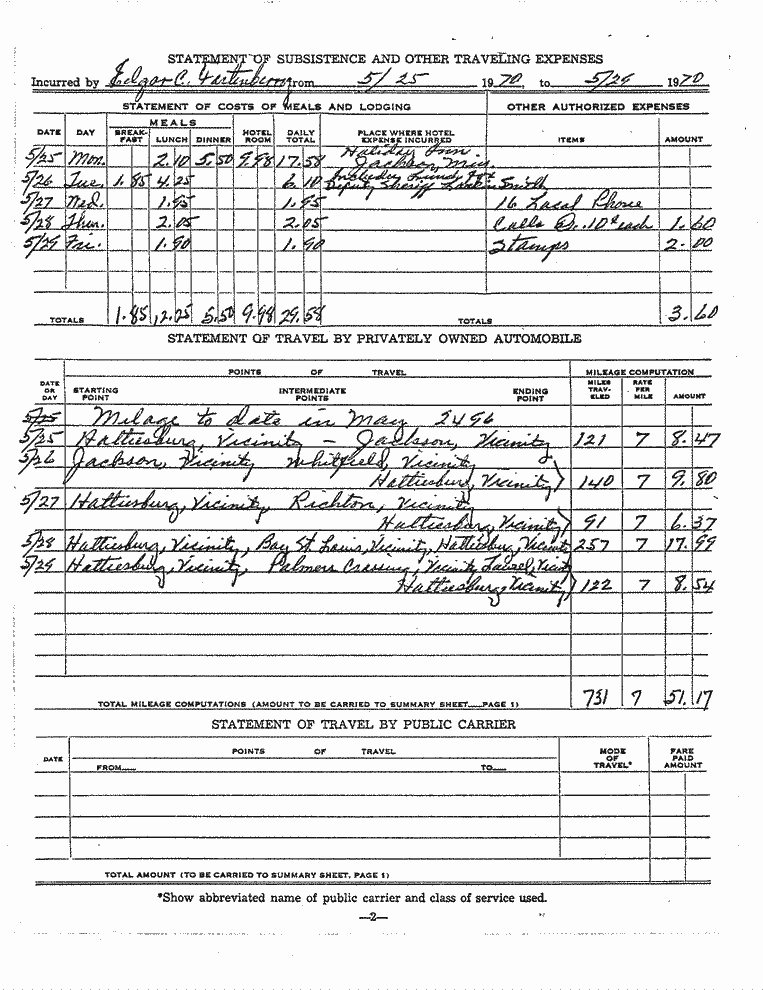 STATEMENT OF SUBSISTENCE AND OTHER TRAVELING EXPENSES
Incurred by Edgar C. Fortenberry from 5/25 1970, to 5/29 1970
STATEMENT OF COSTS OF MEALS AND LODGING OTHER AUTHORIZED EXPENSES
MEALS
DATE DAY BREAK-FAST LUNCH DINNER HOTEL ROOM DAILY TOTAL PLACE WHERE HOTEL EXPENSE INCURRED ITEMS AMOUNT
Holiday Inn
5/25 Mon. 2.10 5.50 9.98 17.58 Jackson, Miss.
Includes Lunch for
5/26 Tue. 1.85 4.25 6.10 Deputy Sheriff Smith
5/27 Wed. 1.95 1.95 16 Local Phone
5/28 Thur. 2.05 2.05 Calls @ .10¢ each 1.60
5/29 Fri. 1.90 1.90 Stamps 2.00
TOTALS 1.85 12.25 5.50 9.98 29.58 TOTALS 3.60
STATEMENT OF TRAVEL BY PRIVATELY OWNED AUTOMOBILE
POINTS OF TRAVEL MILEAGE COMPUTATION
DATE OR DAY STARTING POINT INTERMEDIATE POINTS ENDING POINT MILES TRAV-ELED RATE PER MILE AMOUNT
5/25 Milage to date in May 2496
5/25 Hattiesburg, Vicinity - Jackson, Vicinity 121 7 8.47
5/26 Jackson, Vicinity Whitfield, Vicinity &
Hattiesburg, Vicinity) 140 7 9.80
5/27 Hattiesburg, Vicinity, Richton, Vicinity
Hattiesburg, Vicinity) 91 7 6.37
5/28 Hattiesburg, Vicinity, Bay St. Louis, Vicinity, Hattiesburg, Vicinity 257 7 17.99
5/29 Hattiesburg, Vicinity, Palmers Crossing, Vicinity, Laurel, Vicinity
Hattiesburg, Vicinity) 122 7 8.54
TOTAL MILEAGE COMPUTATIONS (AMOUNT TO BE CARRIED TO SUMMARY SHEET.....PAGE 1) 731 7 51.17
STATEMENT OF TRAVEL BY PUBLIC CARRIER
DATE POINTS OF TRAVEL MODE OF TRAVEL* FARE PAID AMOUNT
FROM..... TO.....
TOTAL AMOUNT (TO BE CARRIED TO SUMMARY SHEET, PAGE 1)
*Show abbreviated name of public carrier and class of service used.
—2—